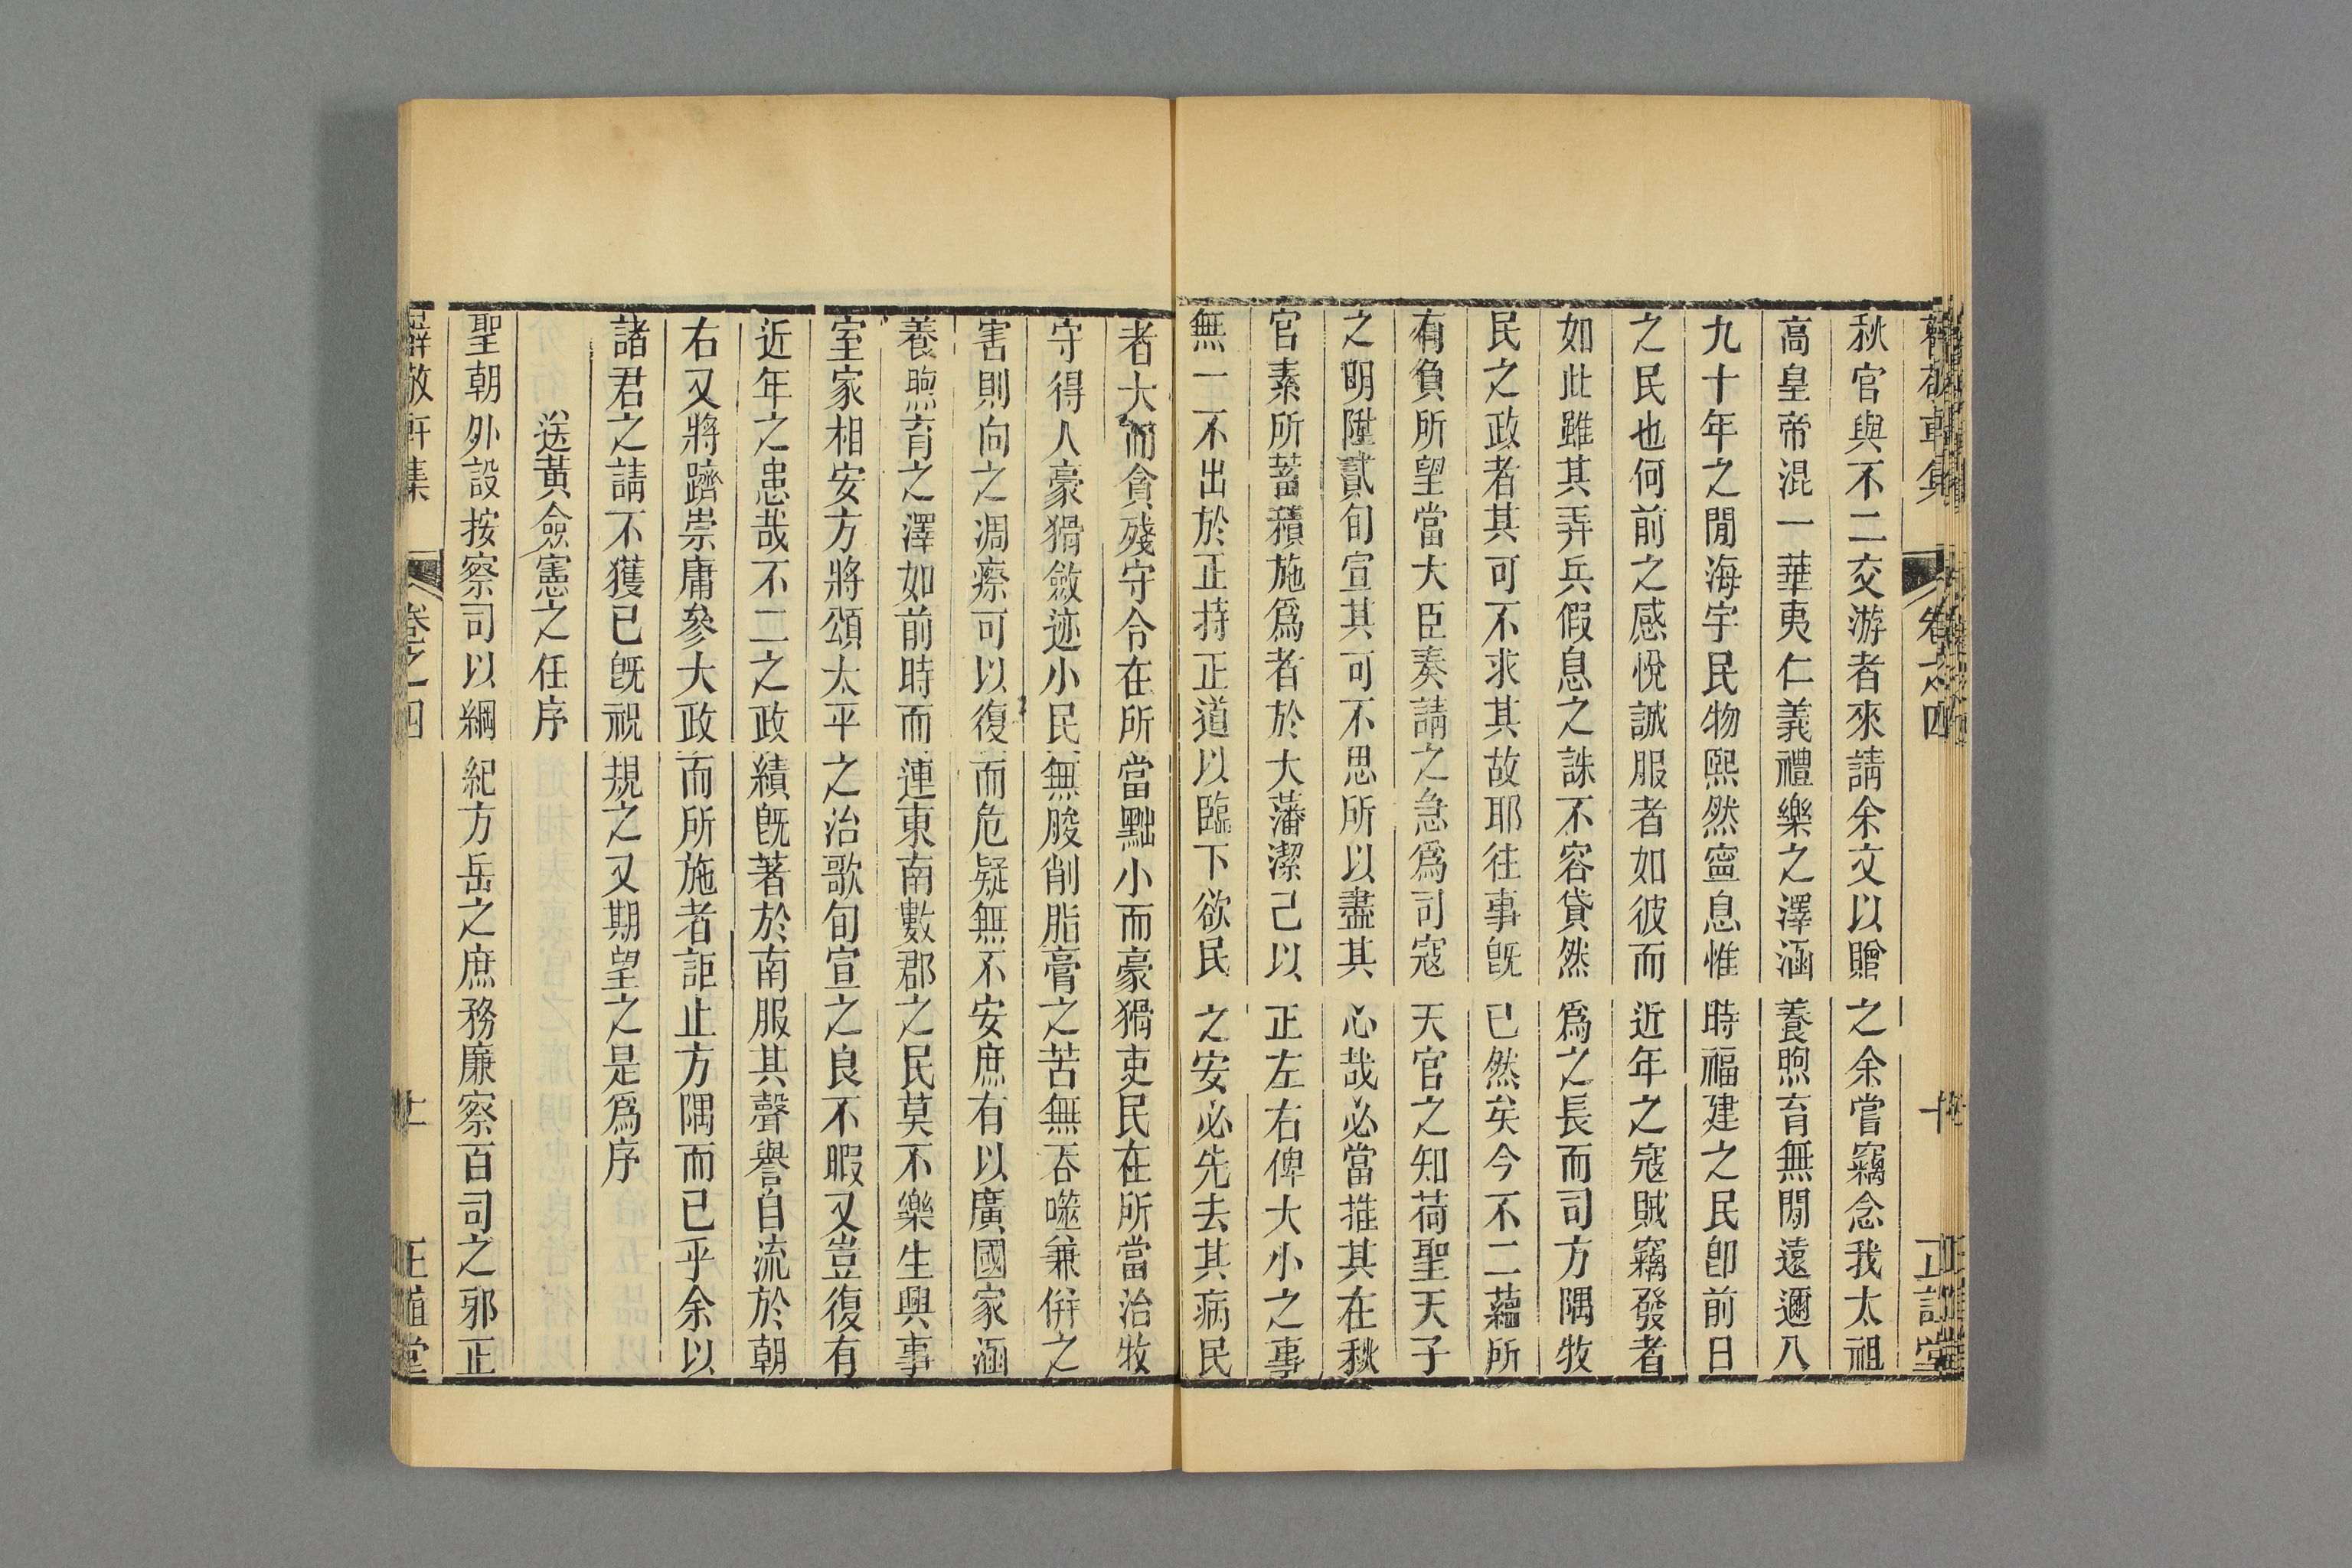 秋官與不二交游者來請余文以贈之余嘗竊念我太祖
高皇帝混一華夷仁義禮樂之澤涵養煦育無閒遠邇八
九十年之閒海宇民物熙然寧息惟時福建之民卽前日
之民也何前之感悅誠服者如彼而近年之寇賊竊發者
如此雖其弄兵假息之誅不容貸然為之長而司方隅牧
民之政者其可不求其故耶往事旣已然矣今不二蘊所
有負所望當大臣奏請之急為司寇天官之知荷聖天子
之明陞貳旬宣其可不思所以盡其心哉必當推其在秋
官素所蓄積施為者於大藩潔己以正左右俾大小之事
無一不出於正持正道以臨下欲民之安必先去其病民
者大而貪殘守令在所當黜小而豪猾吏民在所當治牧
守得人豪猾斂迹小民無朘削脂膏之苦無吞噬兼倂之
害則向之凋瘵可以復而危疑無不安庶有以廣國家涵
養煦育之澤如前時而連東南數郡之民莫不樂生興事
室家相安方將頌太平之治歌旬宣之良不暇又豈復有
近年之患哉不二之政績旣著於南服其聲譽自流於朝
右又將躋崇庸參大政而所施者詎止方隅而已乎余以
諸君之請不獲已旣祝規之又期望之是為序
送黃僉憲之任序
聖朝外設按察司以綱紀方岳之庶務廉察百司之邪正
薛敬軒集 卷之四 十一 正誼堂